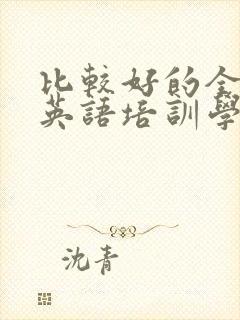 比較好的全
英語培訓學
沈青